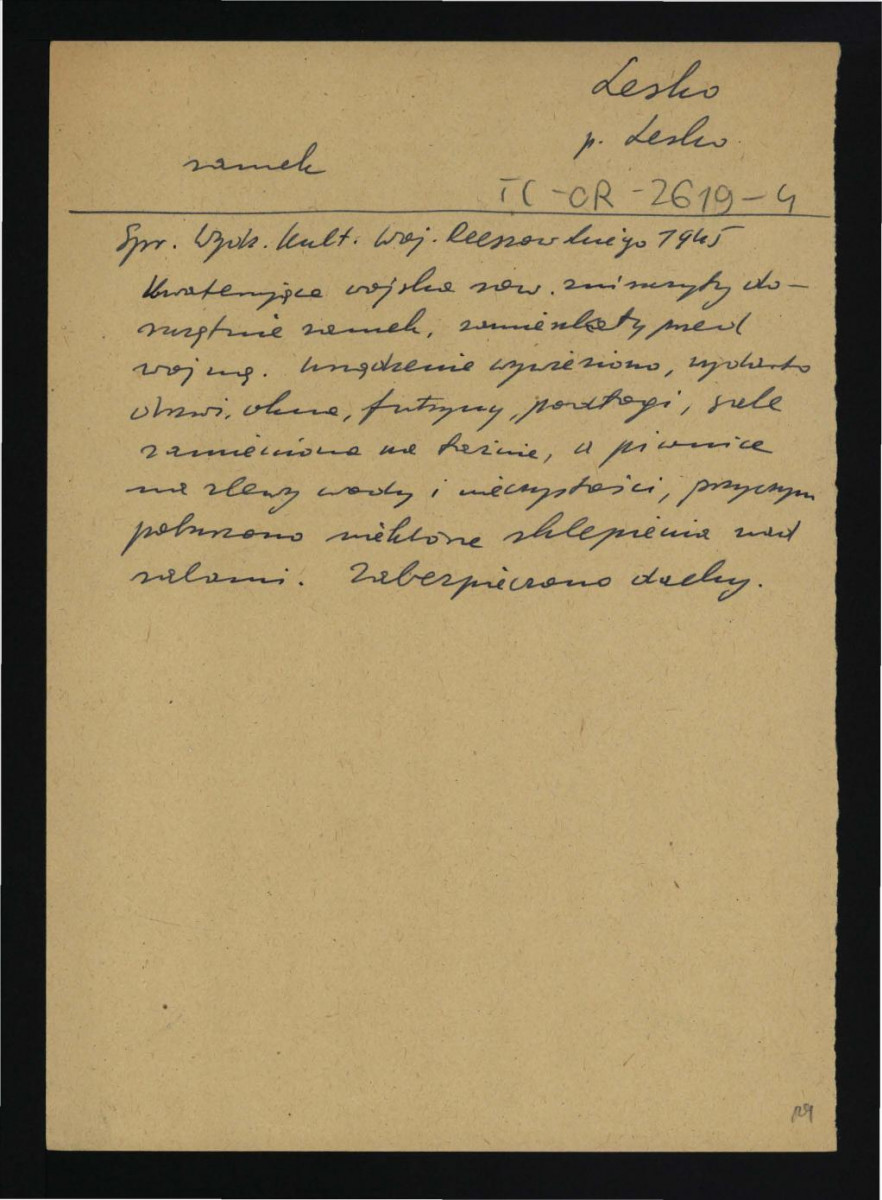 Lesko
p. Lesko
zamek
TC-OR-2619-4
Spr. Wydz. Kult. Woj. Rzeszowskiego 1945
Kwaterujące wojska sow. zniszczyły do-
szczętnie zamek, zamieszkały przed
wojną. Urządzenie wywieziono, wydarto
drzwi, okna, futryny, podłogi, sale
zamieniono na łaźnie, a piwnice
na zlewy wody i nieczystości, przyczym
poburzono niektóre sklepienia nad
salami. Zabezpieczono dachy.